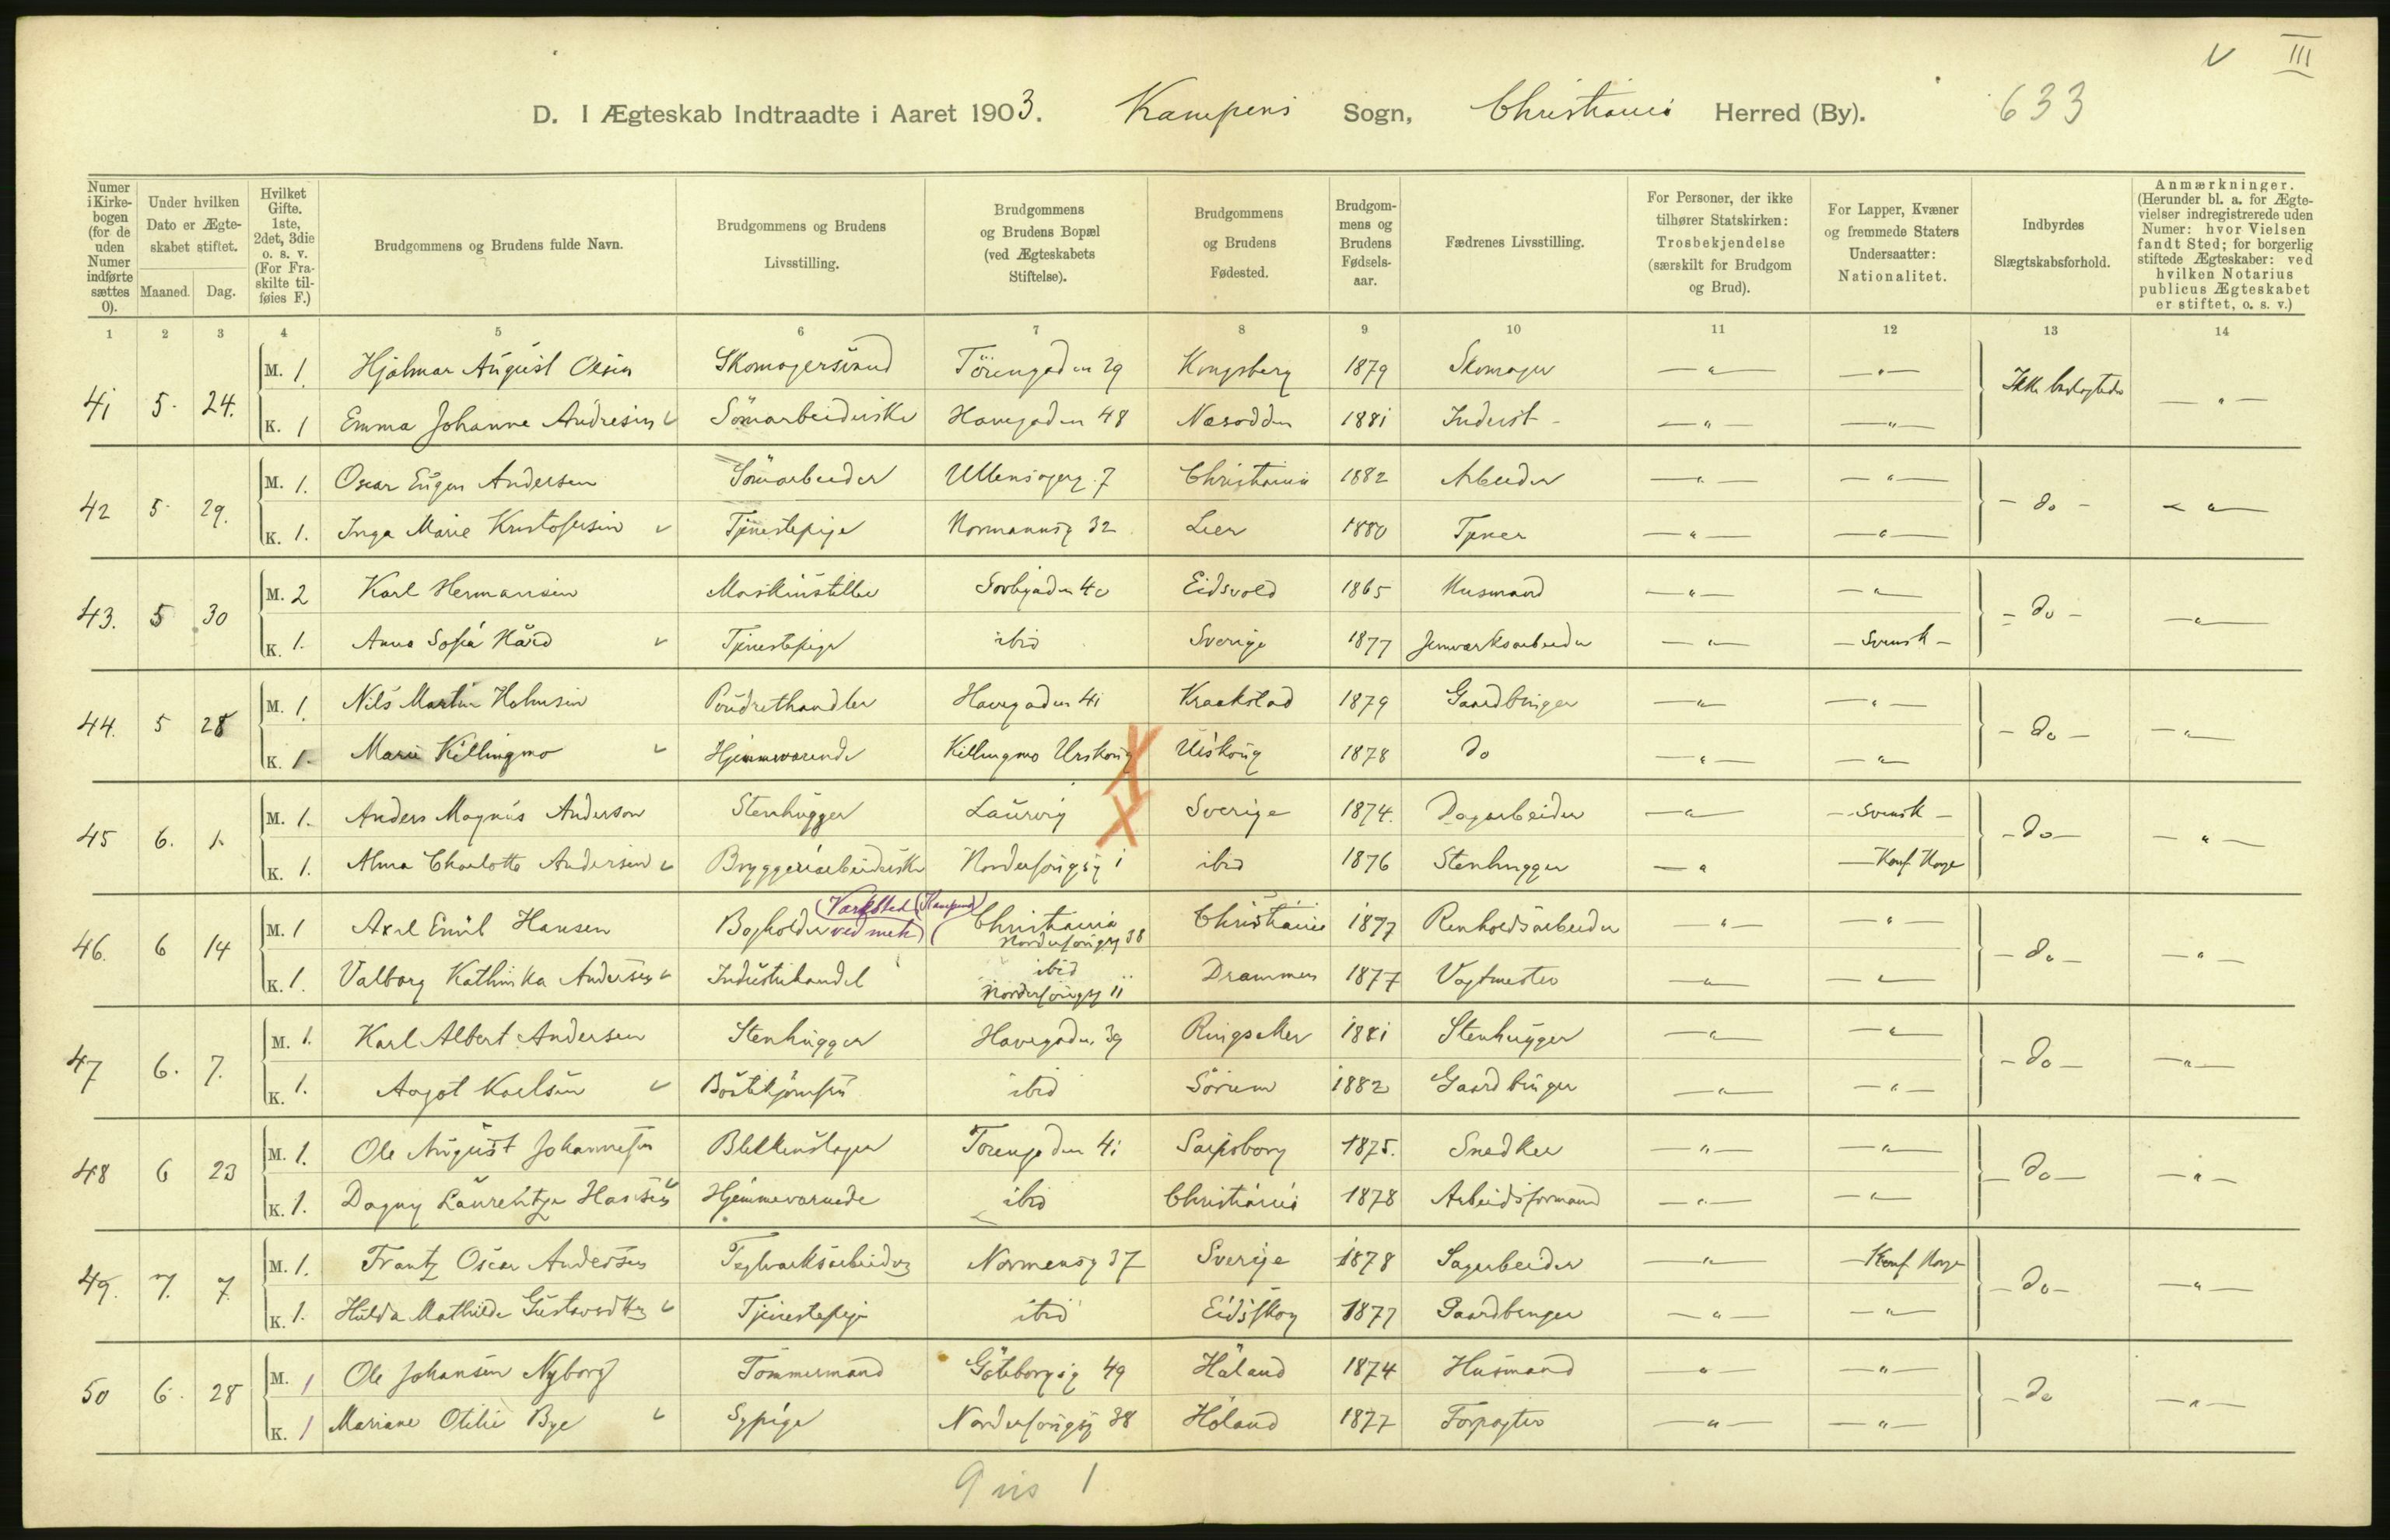 V III
D. I Ægteskab Indtraadte i Aaret 1903. Kampens Sogn, Christiania Herred (By). 633
Numer i Kirkebogen (for de uden Numer indførte sættes 0).
Under hvilken Dato er Ægteskabet stiftet.
Maaned. Dag.
Hvilket Gifte. 1ste, 2det, 3die o. s. v. (For Fraskilte tilføies F.)
Brudgommens og Brudens fulde Navn.
Brudgommens og Brudens Livsstilling.
Brudgommens og Brudens Bopæl (ved Ægteskabets Stiftelse).
Brudgommens og Brudens Fødested.
Brudgommens og Brudens Fødselsaar.
Fædrenes Livsstilling.
For Personer, der ikke tilhører Statskirken: Trosbekjendelse (særskilt for Brudgom og Brud).
For Lapper, Kvæner og fremmede Staters Undersaatter: Nationalitet.
Indbyrdes Slægtskabsforhold.
Anmærkninger. (Herunder bl. a. for Ægtevielser indregistrerede uden Numer: hvor Vielsen fandt Sted; for borgerlig stiftede Ægteskaber: ved hvilken Notarius publicus Ægteskabet er stiftet, o. s. v.)
1 2 3 4 5 6 7 8 9 10 11 12 13 14
41 5. 24. M. 1. Hjalmar August Olsen Skomagersvend Töiengaden 29 Kongsberg 1879 Skomager — " — — " — Ikke beslægtede — " —
K. 1 Emma Johanne Andresen Sömarbeiderske Havegaden 48 Næsodden 1881 Inderst — " — — " —
42 5. 29. M. 1. Oscar Eugen Andersen Sömarbeider Ullensagerg. 7 Christiania 1882 Arbeider — " — — " — — do — — " —
K. 1. Inga Marie Kristofersen Tjenestepige Normannsg 32 Lier 1880 Tjener — " — — " —
43. 5 30 M. 2 Karl Hermansen Maskinstiller 4c Eidsvold 1865 Husmand — " — — " — — do — — " —
K. 1. Anna Sofia Hård Tjenestepige ibid Sverige 1877 Jernværksarbeider — " — — Svensk —
44. 5 28 M. 1. Nils Martin Holmsen Poudrethandler Havegaden 41 Kraakstad 1879 Gaardbruger — " — — " — — do — — " —
K. 1. Marie Killingmo Hjemmeværende Killingmo Urskoug Urskoug 1878 do — " — — " —
45 6. 1. M. 1. Anders Magnus Anderson Stenhugger Laurvig Sverige 1874. Dagarbeider — " — — Svensk — — do — — " —
K. 1. Alma Charlotte Andersen Bryggeriarbeiderske Nordenfougsg 1 ibid 1876 Stenhugger — " — Norge
46. 6 14 M. 1 Axel Emil Hansen Bogholder ved mek. (Værksted (Kampen) Christiania Christiania 1877 Renholdsarbeider — " — — " — — do — — " —
38
K. 1. Valborg Kathinka Andersen Industrihandel ibid Drammen 1877 Vagtmester — " — — " —
11
47 6. 7. M. 1. Karl Albert Andersen Stenhugger Havegaden 39 Ringsaker 1881 Stenhugger — " — — " — — do — — " —
K. 1. Aagot Karlsen ibid Sörum 1882 Gaardbruger — " — — " —
48 6 23 M. 1. Ole August Johannesen Blikkenslager Töiengaden 41 Sarpsborg 1875. Snedker — " — — " — — do — — " —
K. 1. Dagny Laurentze Hansen Hjemmeværende ibid Christiania 1878 Arbeidsformand — " — — " —
49. 7. 7. M. 1. Frantz Oscar Andersen Teglværksarbeider Normansg 37 Sverige 1878 Sagarbeider — " — Norge — do — — " —
K. 1. Hulda Mathilde Gustavsdtr Tjenestepige ibid Eidskog 1877 Gaardbruger — " — — " —
50 6. 28 M. 1 Ole Johansen Nyborg Tömmermand Göteborgsg 49 Höland 1874 Husmand — " — — " — — do — " —
K. 1 Mariane Otilie Bye Sypige Nordenfougsg 38 Höland 1877 Forpagter — " — — " —